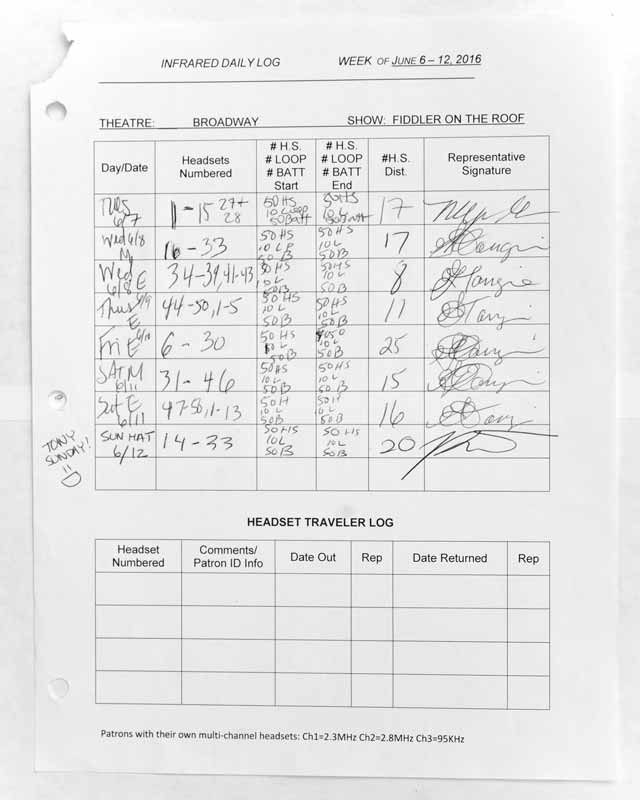 INFRARED DAILY LOG WEEK OF JUNE 6 – 12, 2016
THEATRE: BROADWAY SHOW: FIDDLER ON THE ROOF
Day/Date Headsets Numbered # H.S. # LOOP # BATT Start # H.S. # LOOP # BATT End #H.S. Dist. Representative Signature
TUES 6/7 1 - 15 27+ 28 50 HS 10 Loop 50 Batt 50 HS 10 L 50 Batt 17
Wed 6/8 M 16 - 33 50 HS 10 LP 50 B 50 HS 10 L 50 B 17
Wed 6/8 E 34-39, 41-43, 50 HS 10 L 50 B 50 HS 10 L 50 B 8
Thus 6/9 E 44-50, 1-5 50 HS 10 L 50 B 50 HS 10 L 50 B 11
Fri E 6/10 6 - 30 50 HS 10 L 50 B 50 50 B 25
SAT M 6/11 31 - 46 50 HS 10 L 50 B 50 HS 10 L 50 B 15
Sat E 6/11 47-50, 1-13 50 H 10 L 50 B 50 H 10 L 50 B 16
SUN MAT 6/12 14 - 33 50 HS 10 L 50 B 50 HS 10 L 50 B 20
TONY SUNDAY!
HEADSET TRAVELER LOG
Headset Numbered Comments/ Patron ID Info Date Out Rep Date Returned Rep
Patrons with their own multi-channel headsets: Ch1=2.3MHz Ch2=2.8MHz Ch3=95KHz